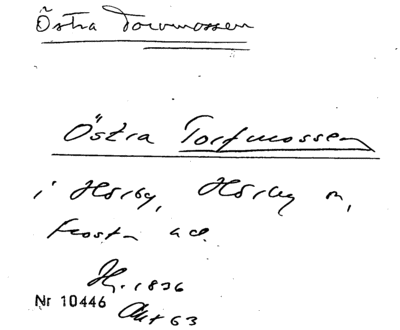 Östra Torvmossen
Östra Torfmossen
i Hörby, Hörby sn,
Frosta hd.
Hy. 1836
Nr 10446
Akt 63